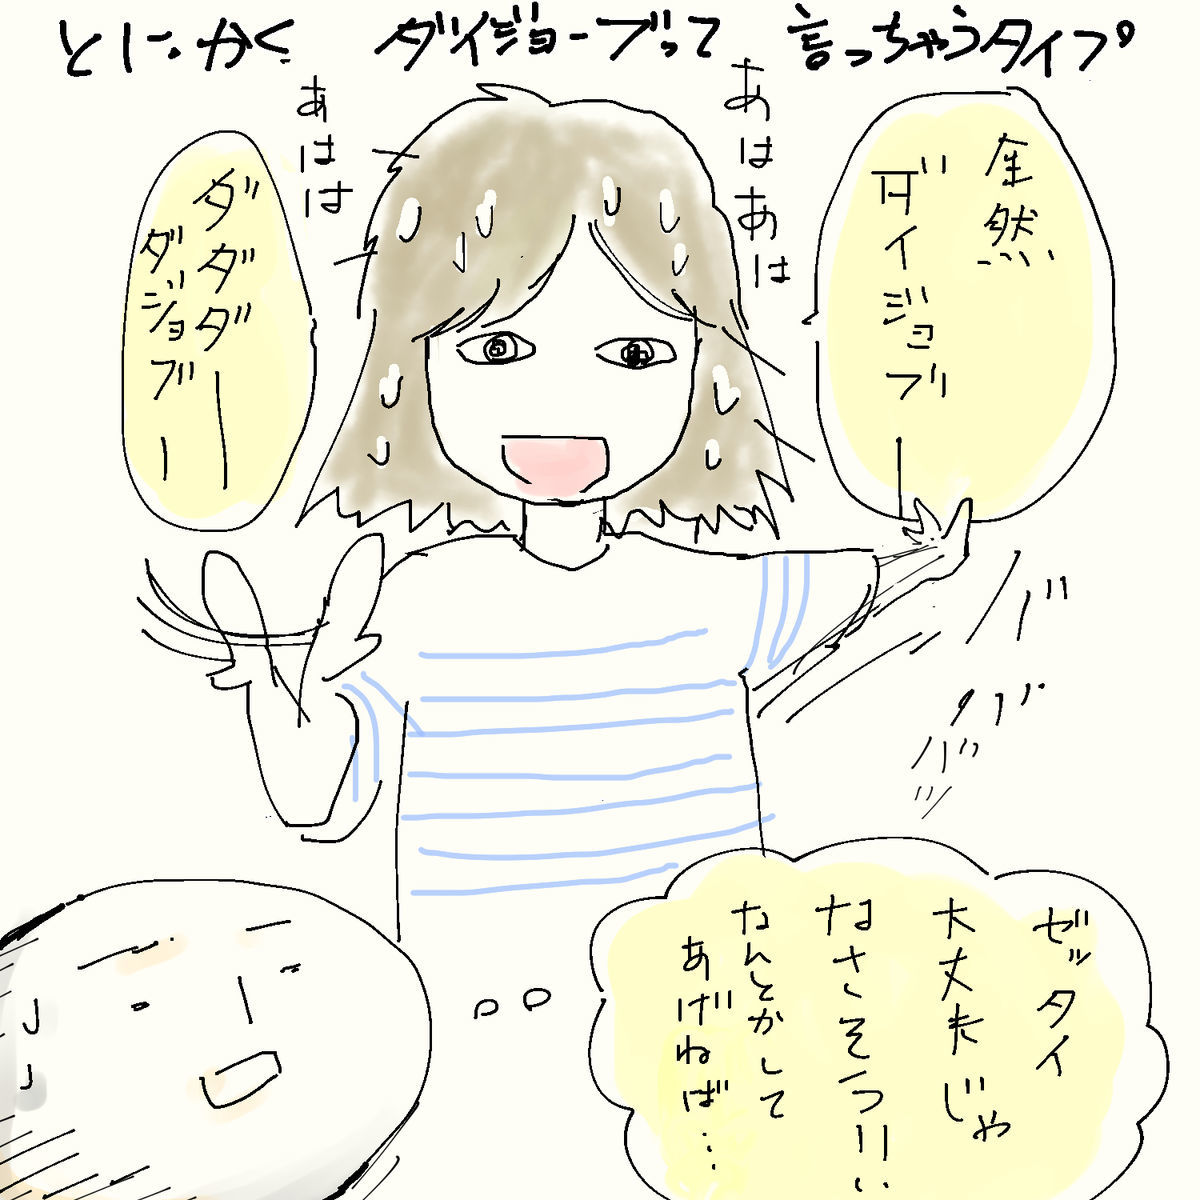 とにかく ダイジョーブって 言っちゃうタイプ
全然
ダイジョブー
あはあは
あはは
ダダダー
ダジョブー
バ
バ
バ
ゼッタイ
大丈夫じゃ
なさそう!!
なんとかして
あげねば…